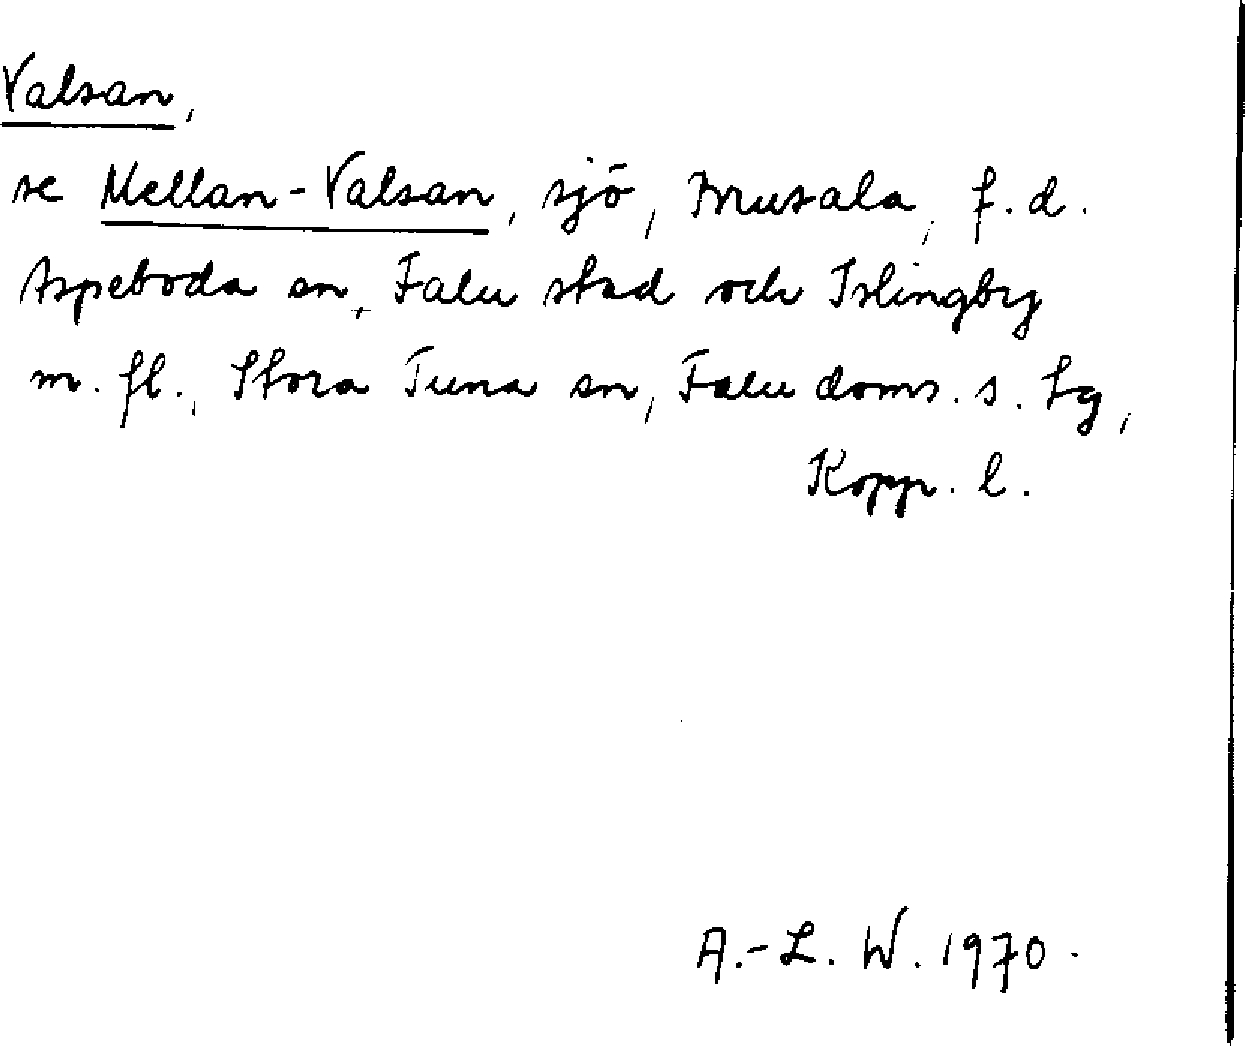 Valsan,
se Mellan-Valsan, sjö, Krusala, f.d.
Aspeboda sn, Falu stad och Islingby
m. fl., Stora Tuna sn, Falu doms. s. tg,
Kopp. l.
A.-L. W. 1970.